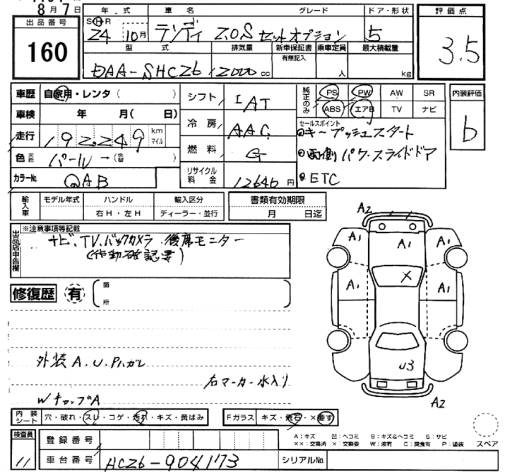 8月7
出品番号
160
年式 車名 グレード ドア・形状 評価点
S H R
24 10月 ランディ 2.0S セットオプション 5 3.5
型式 排気量 新車保証書 乗車定員 最大積載量
有無記入
DAA-SHC26 2000 cc 人 kg
車歴 自家用・レンタ( )
車検 年 月( 日)
走行 192,249 km マイル
色 パール
カラーNo. QAB
シフト IAT
冷房 AAC
燃料 G
リサイクル料金 12640円
純正のみ PS PW AW SR
ABS エアB TV ナビ
セールスポイント
キープッシュスタート
両側パワースライドドア
ETC
内装評価
b
輸入車 モデル年式 ハンドル 輸入区分 書類有効期限
年 右H・左H ディーラー・並行 月 日迄
※注意事項等記載
出品店申告欄
ナビ、TV、バックカメラ 後席モニター
(作動確認要)
修復歴 有 箇所
外装A.U.P.ハガレ
右マーカー水入り
WチップA
A2
A1 A1 A1
A1 X A1
U3
A2
内装シート 穴・破れ・スレ・コゲ・汚れ・キズ・黄ばみ
Fガラス キズ・飛石・×要す
検査員 11
登録番号
車台番号 HC26-904173
シリアルNo.
A:キズ U:ヘコミ B:キズ&ヘコミ S:サビ
××:交換済 ×:交換要 W:波有 C:腐食有 P:塗装
スペア